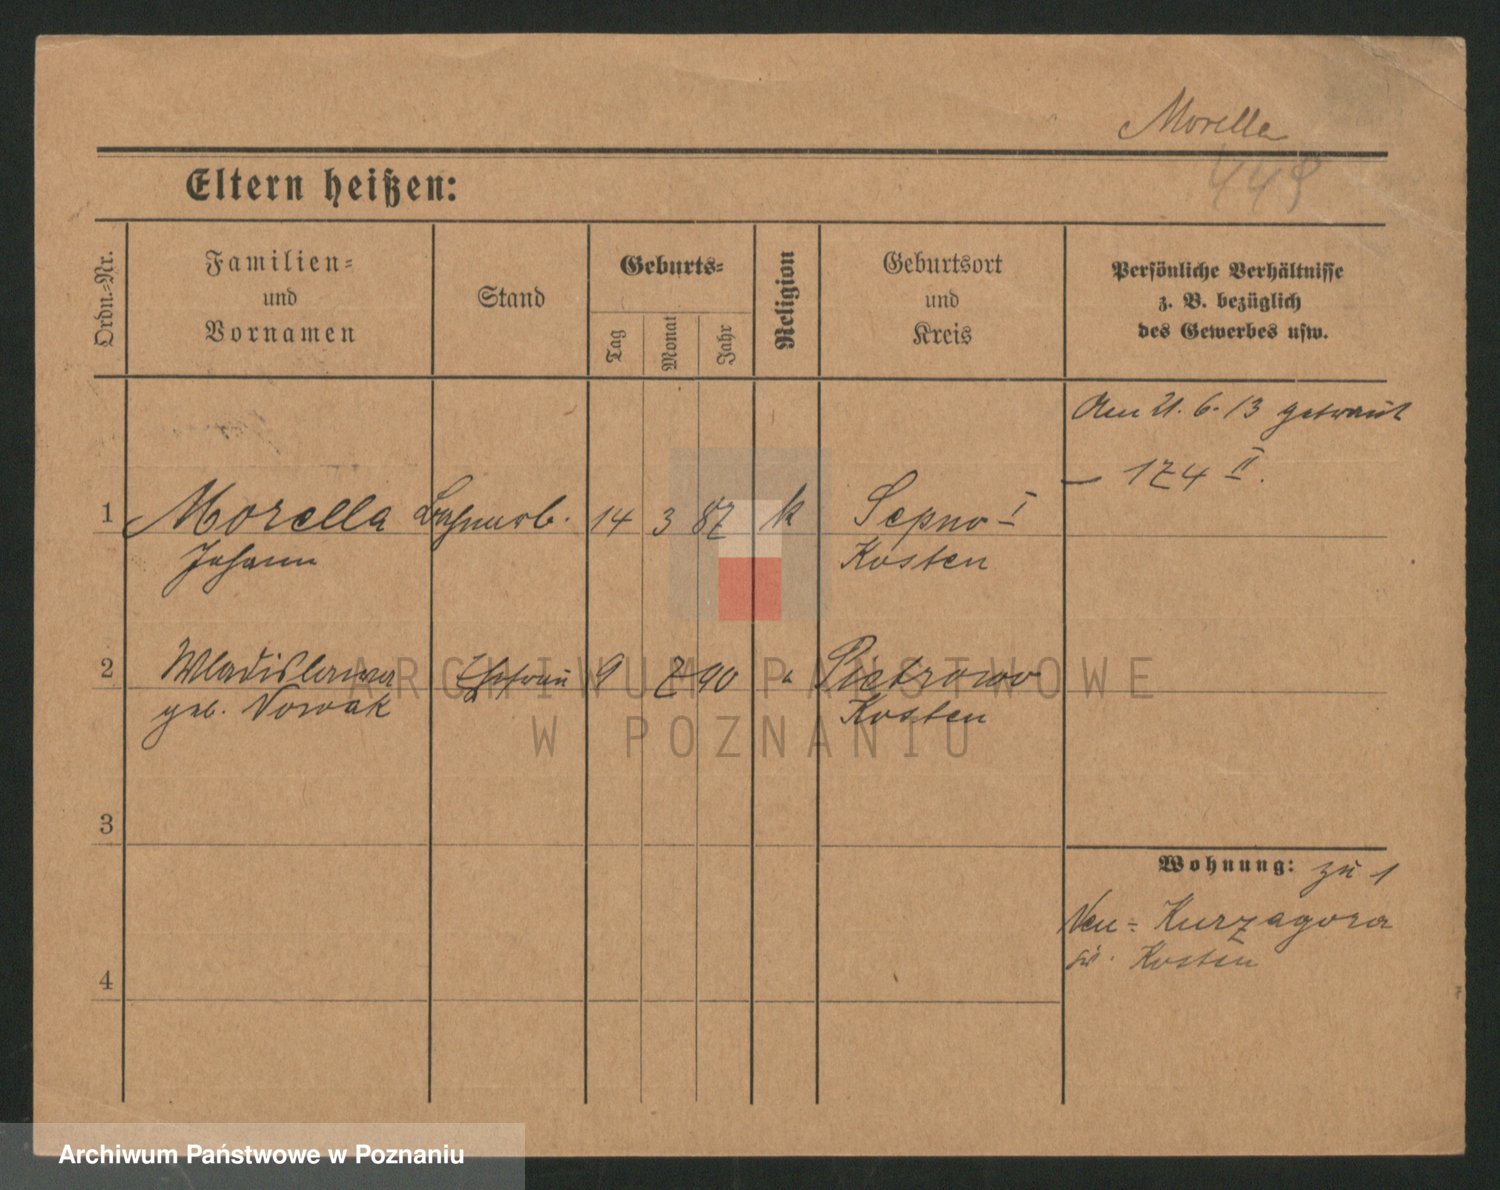 Morella
448
Eltern heißen:
Ordn.-Nr.
Familien-
und
Vornamen
Stand
Geburts-
Tag
Monat
Jahr
Religion
Geburtsort
und
Kreis
Persönliche Verhältnisse
z. B. bezüglich
des Gewerbes usw.
Am 21. 6. 13 getraut
– 174 II.
1 Morella Bahnarb. 14 3 87 k Sepno I
Johann Kosten
2 Wladislawa Ehefrau 9 7 90 " Pietrowo
geb. Nowak Kosten
ARCHIWUM PAŃSTWOWE
W POZNANIU
3
Wohnung: zu 1
Neu = Kurzagora
Kosten
4
Archiwum Państwowe w Poznaniu